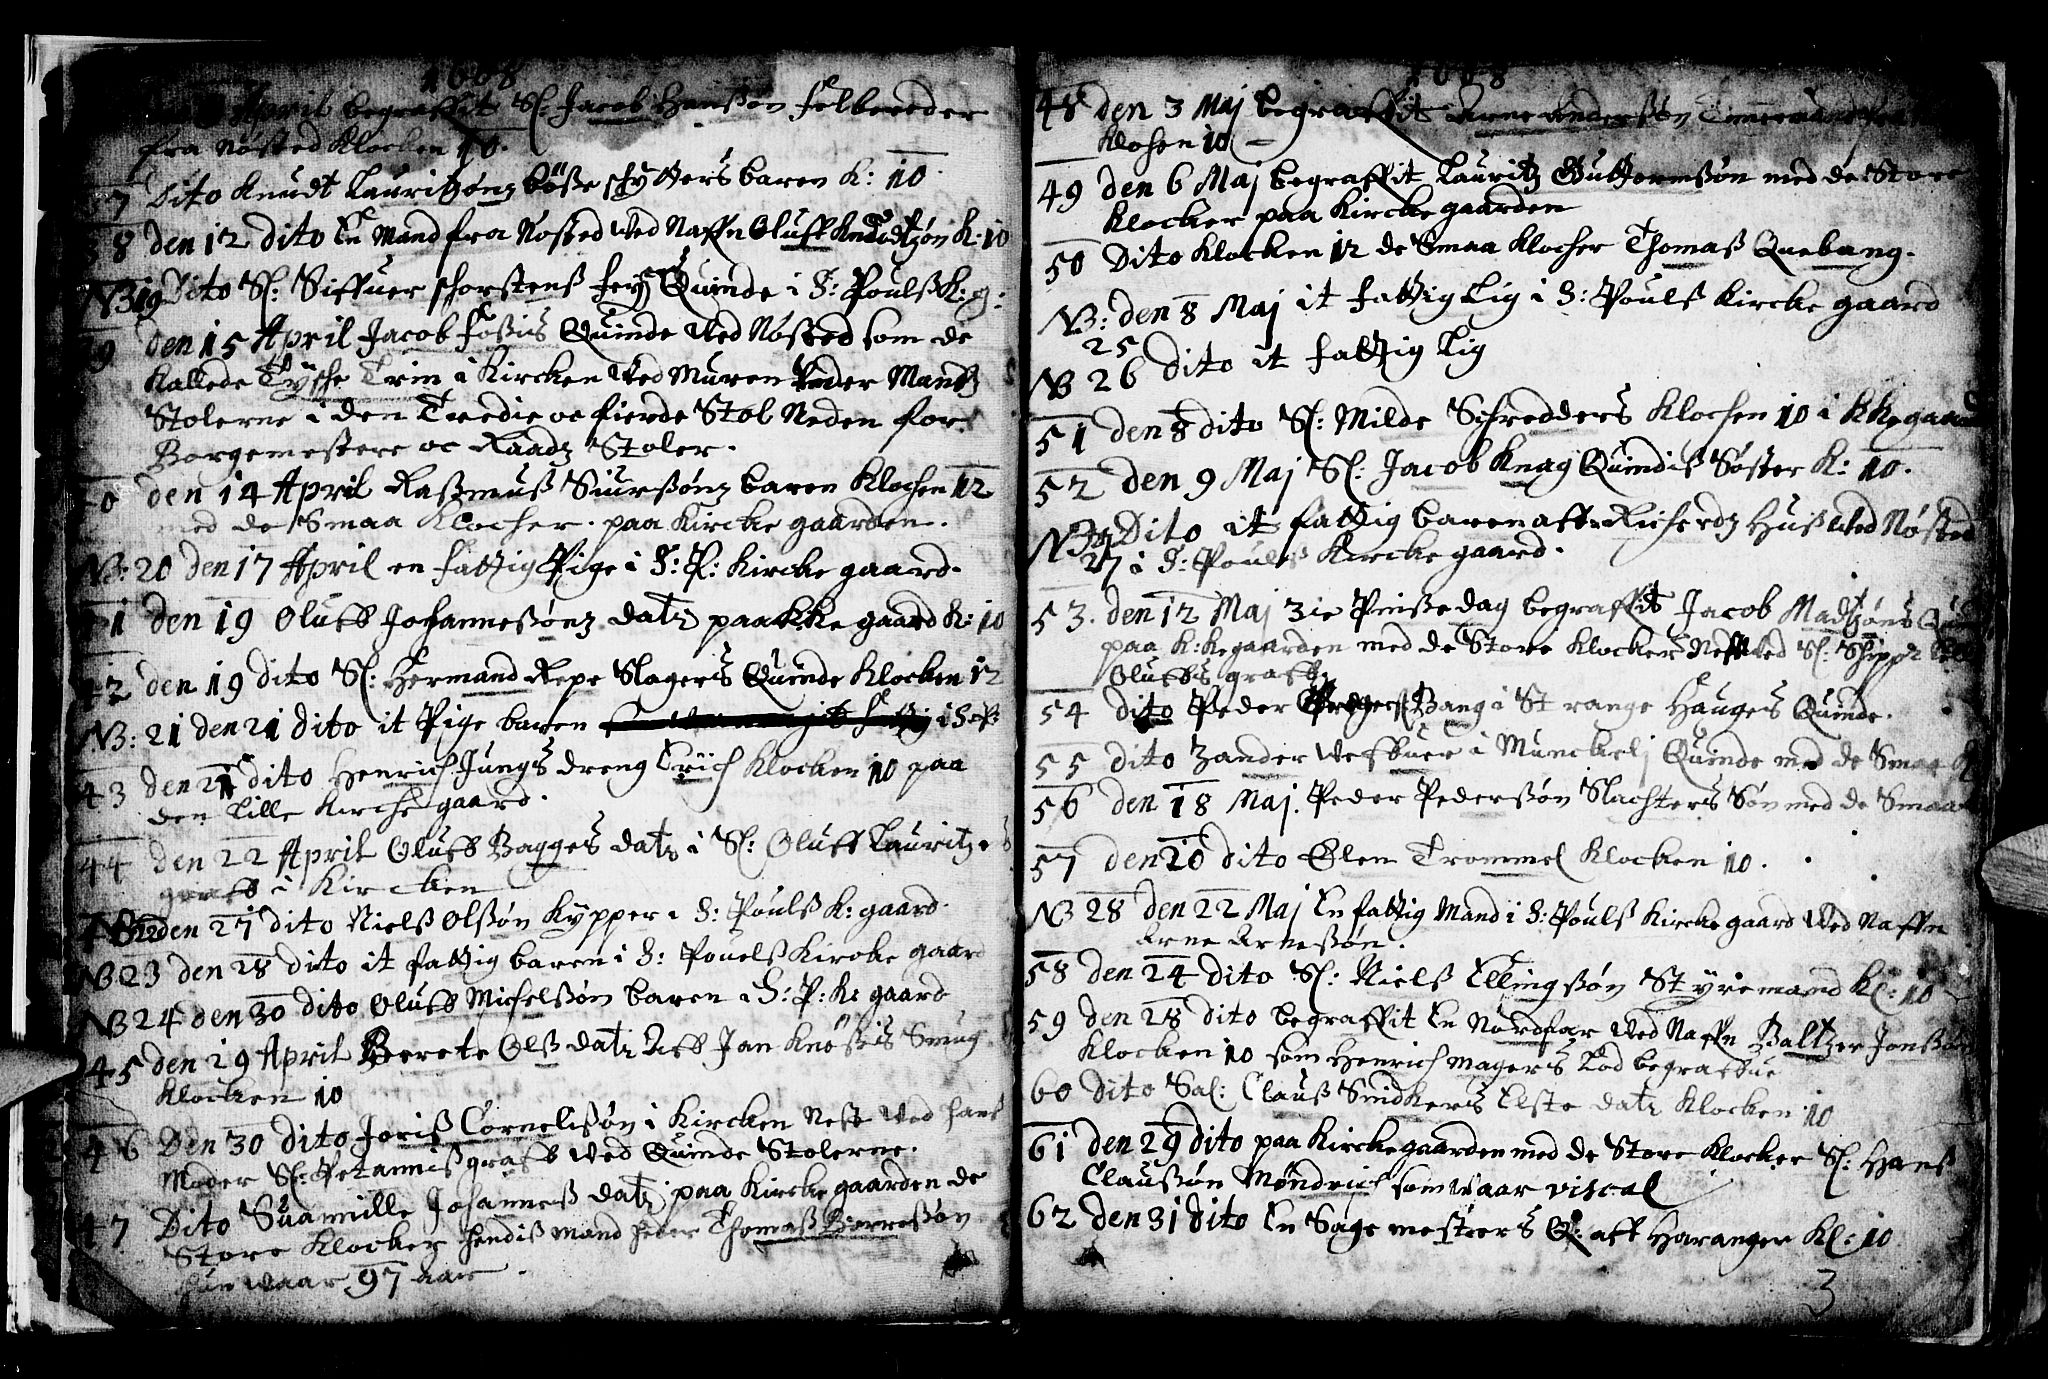 1668
April begraffit Sl: Jacob Hanssøn Felbereder
fra Nøsted Klocken 10.
37 Dito Knudt Lauritzønz bøsse schytters baren K: 10.
38 den 12 dito En Mand fra Nøsted ved Naffn Oluff Knudtzøn K: 10
NB 19 Dito Sl: Siffuer schorstens feyers Quinde i S: Pouls K: g:
39 den 15 April Jacob Fosses Quinde ved Nøsted som de
Kallede Tÿsche Trin i Kircken ved Muren under Mandz
Stolerne i den Tredie oc fierde Stol Neden for
Borgemestere oc Raadz Stoler.
40 den 14 April Rassmuss Siurssønz baren Klochen 12
med de Smaa Klocher. paa Kircke gaarden.
NB: 20 den 17 April en fattig Pige i S: P: Kircke gaard.
41 den 19 Oluff Johannessønz datr paa K.Ke gaard K: 10
42 den 19 dito Sl: Hermand Repe Slagers Quinde Klocken 12
NB: 21 den 21 dito it Pige baren i S: P:
43 den 21 dito Henrich Jungs dreng Erich Klocken 10 paa
den Lille Kirche gaard.
44 den 22 April Oluff Bagges datr i Sl: Oluff Lauritzes
graff i Kircken
NB 22 den 27 dito Nielss Olssøn Kypper i S: Poulss K: gaard.
NB 23 den 28 dito it fattig baren i S: Pouelss Kircke gaard
NB 24 den 30 dito Oluff Michelssøn baren i S: P: Ke gaard
45 den 29 April Berete Olss datr Uff Jan Knøsses Smug
Klocken 10
46 Den 30 dito Joriss Cornelissøn i Kircken Nest ved hans
Moder Sl: Petannissgraff ved Quinde Stolerne.
47 Dito Suannille Johanness datr paa Kircke gaarden de
Store Klocker hendiss mand heder Thomass Borressøn
hun waar 97 aar.
1668
48 den 3 Maj begraffit Arne Anderssøn Timmermand
Klohen 10
49 den 6 Maj begraffit Lauritz Guttormssøn med de Store
Klocker paa Kircke gaarden
50 Dito Klocken 12 de Smaa Klocher Thomass Quebang.
NB: den 8 Maj it fattig Lig i S: Poulss Kircke gaard
25
NB 26 dito it fattig Lig
51 den 8 dito Sl: Milde Schredders Klochen 10 i KKegaard
52 den 9 Maj Sl: Jacob Knag Quindiss Søster K: 10.
NB Dito it fattig baren aff Richerdz Huss ved Nøsted
27 i S: Poulss Kircke gaard.
53. den 12 Maj 3ie Pinsse dag begraffit Jacob Madtzøns
paa K:Kegaarden med de Store Klocker Nest ved Sl: Schippr
Oluffs graff
54 dito Peder Bang i Strange Hauges Quinde.
55 dito Zander Weffuer i Munckelj Quinde med de Smaa K
56 den 18 Maj. Peder Pederssøn Slachters Søn med de Smaa
57 den 20 dito Ølen Trommel Klocken 10.
NB 28 den 22 Maj En fattig Mand i S: Pouls Kircke gaard ved Naffn
Arne Arnessøn.
58 den 24 dito Sl: Nielss Ellingssøn Styremand Kl: 10
59 den 28 dito begraffit En Nordfar ved Naffn Baltzer Jonssøn
Klocken 10 som Henrich Magers Lod begraffue
60 dito Sal: Clauss Smidkers Elste datr Klocken 10
61 den 29 dito paa Kircke gaarden med de Store Klocker Sl: Hanss
Claussøn Møndrich som waar viscal
62 den 31 dito En Sage mesters Q: aff Haranger Kl: 10
3